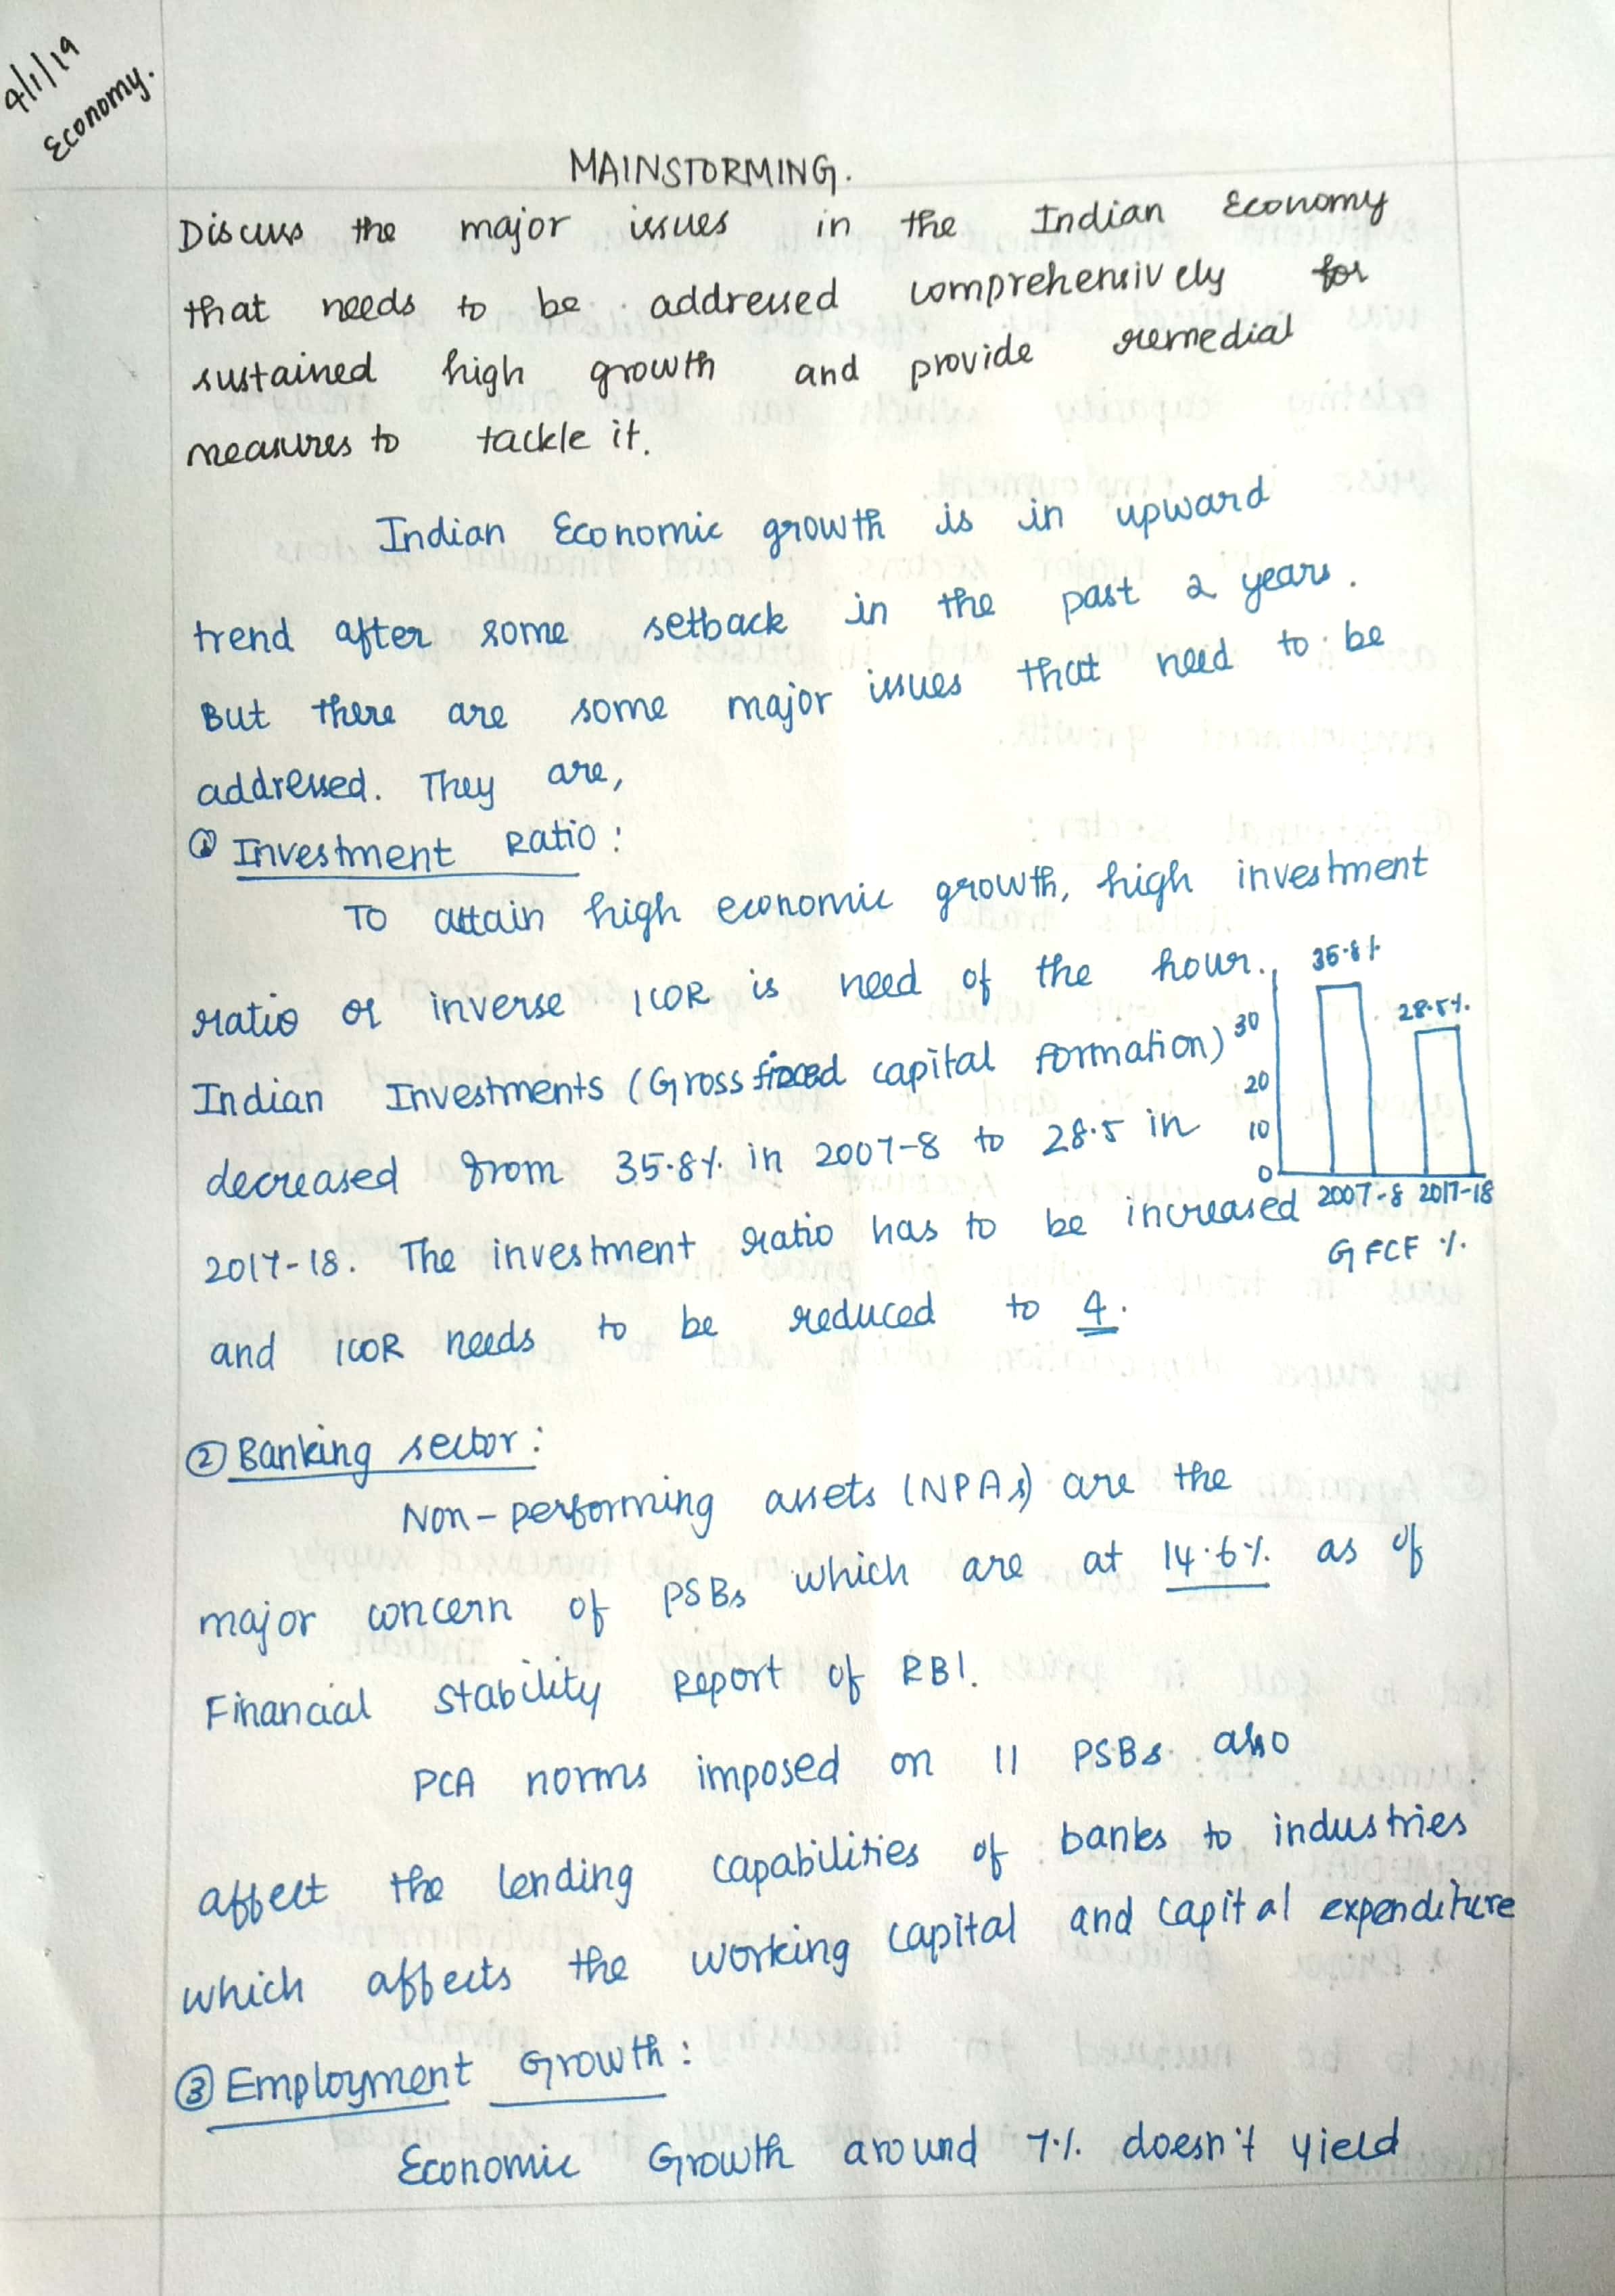 4/1/19
Economy.
MAINSTORMING.
Discuss the major issues in the Indian Economy
that needs to be addressed comprehensively for
sustained high growth and provide remedial
measures to tackle it.
Indian Economic growth is in upward
trend after some setback in the past 2 years.
But there are some major issues that need to be
addressed. They are,
① Investment Ratio:
To attain high economic growth, high investment
ratio or inverse ICOR is need of the hour.
Indian Investments (Gross fixed capital formation)
decreased from 35.8% in 2007-8 to 28.5 in
2017-18. The investment ratio has to be increased
and ICOR needs to be reduced to 4.
35.8%
28.5%
30
20
10
0
2007-8 2017-18
GFCF %
② Banking sector:
Non-performing assets (NPAs) are the
major concern of PSBs which are at 14.6% as of
Financial Stability Report of RBI.
PCA norms imposed on 11 PSBs also
affect the lending capabilities of banks to industries
which affects the working capital and capital expenditure
③ Employment Growth:
Economic Growth around 7% doesn't yield